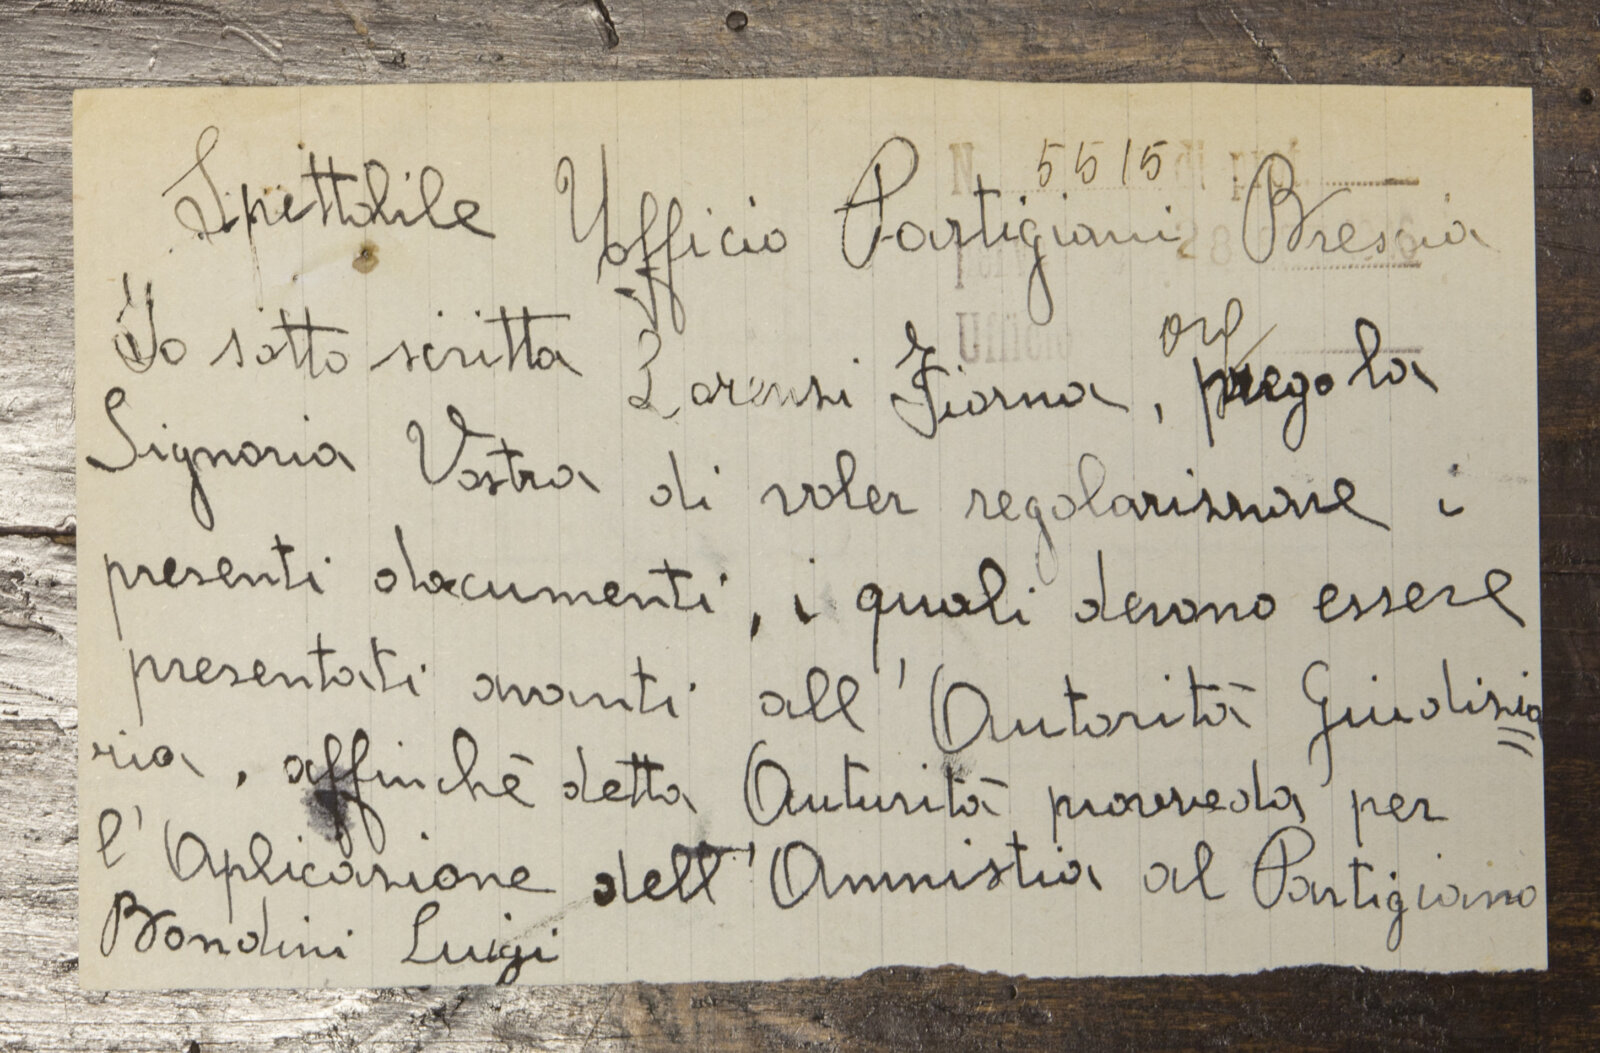 N. 5515 di prot.
Spettabile Ufficio Partigiani Brescia
28
Ufficio
Io sotto scritta Lorensi Fiorna, prego la
Signoria Vostra di voler regolarissare i
presenti documenti, i quali devono essere
presentati avanti all'Autorità Giudisia
ria, affinchè detta Auturità provveda per
l'Aplicasione dell'Amnistia al Partigiano
Bondini Luigi